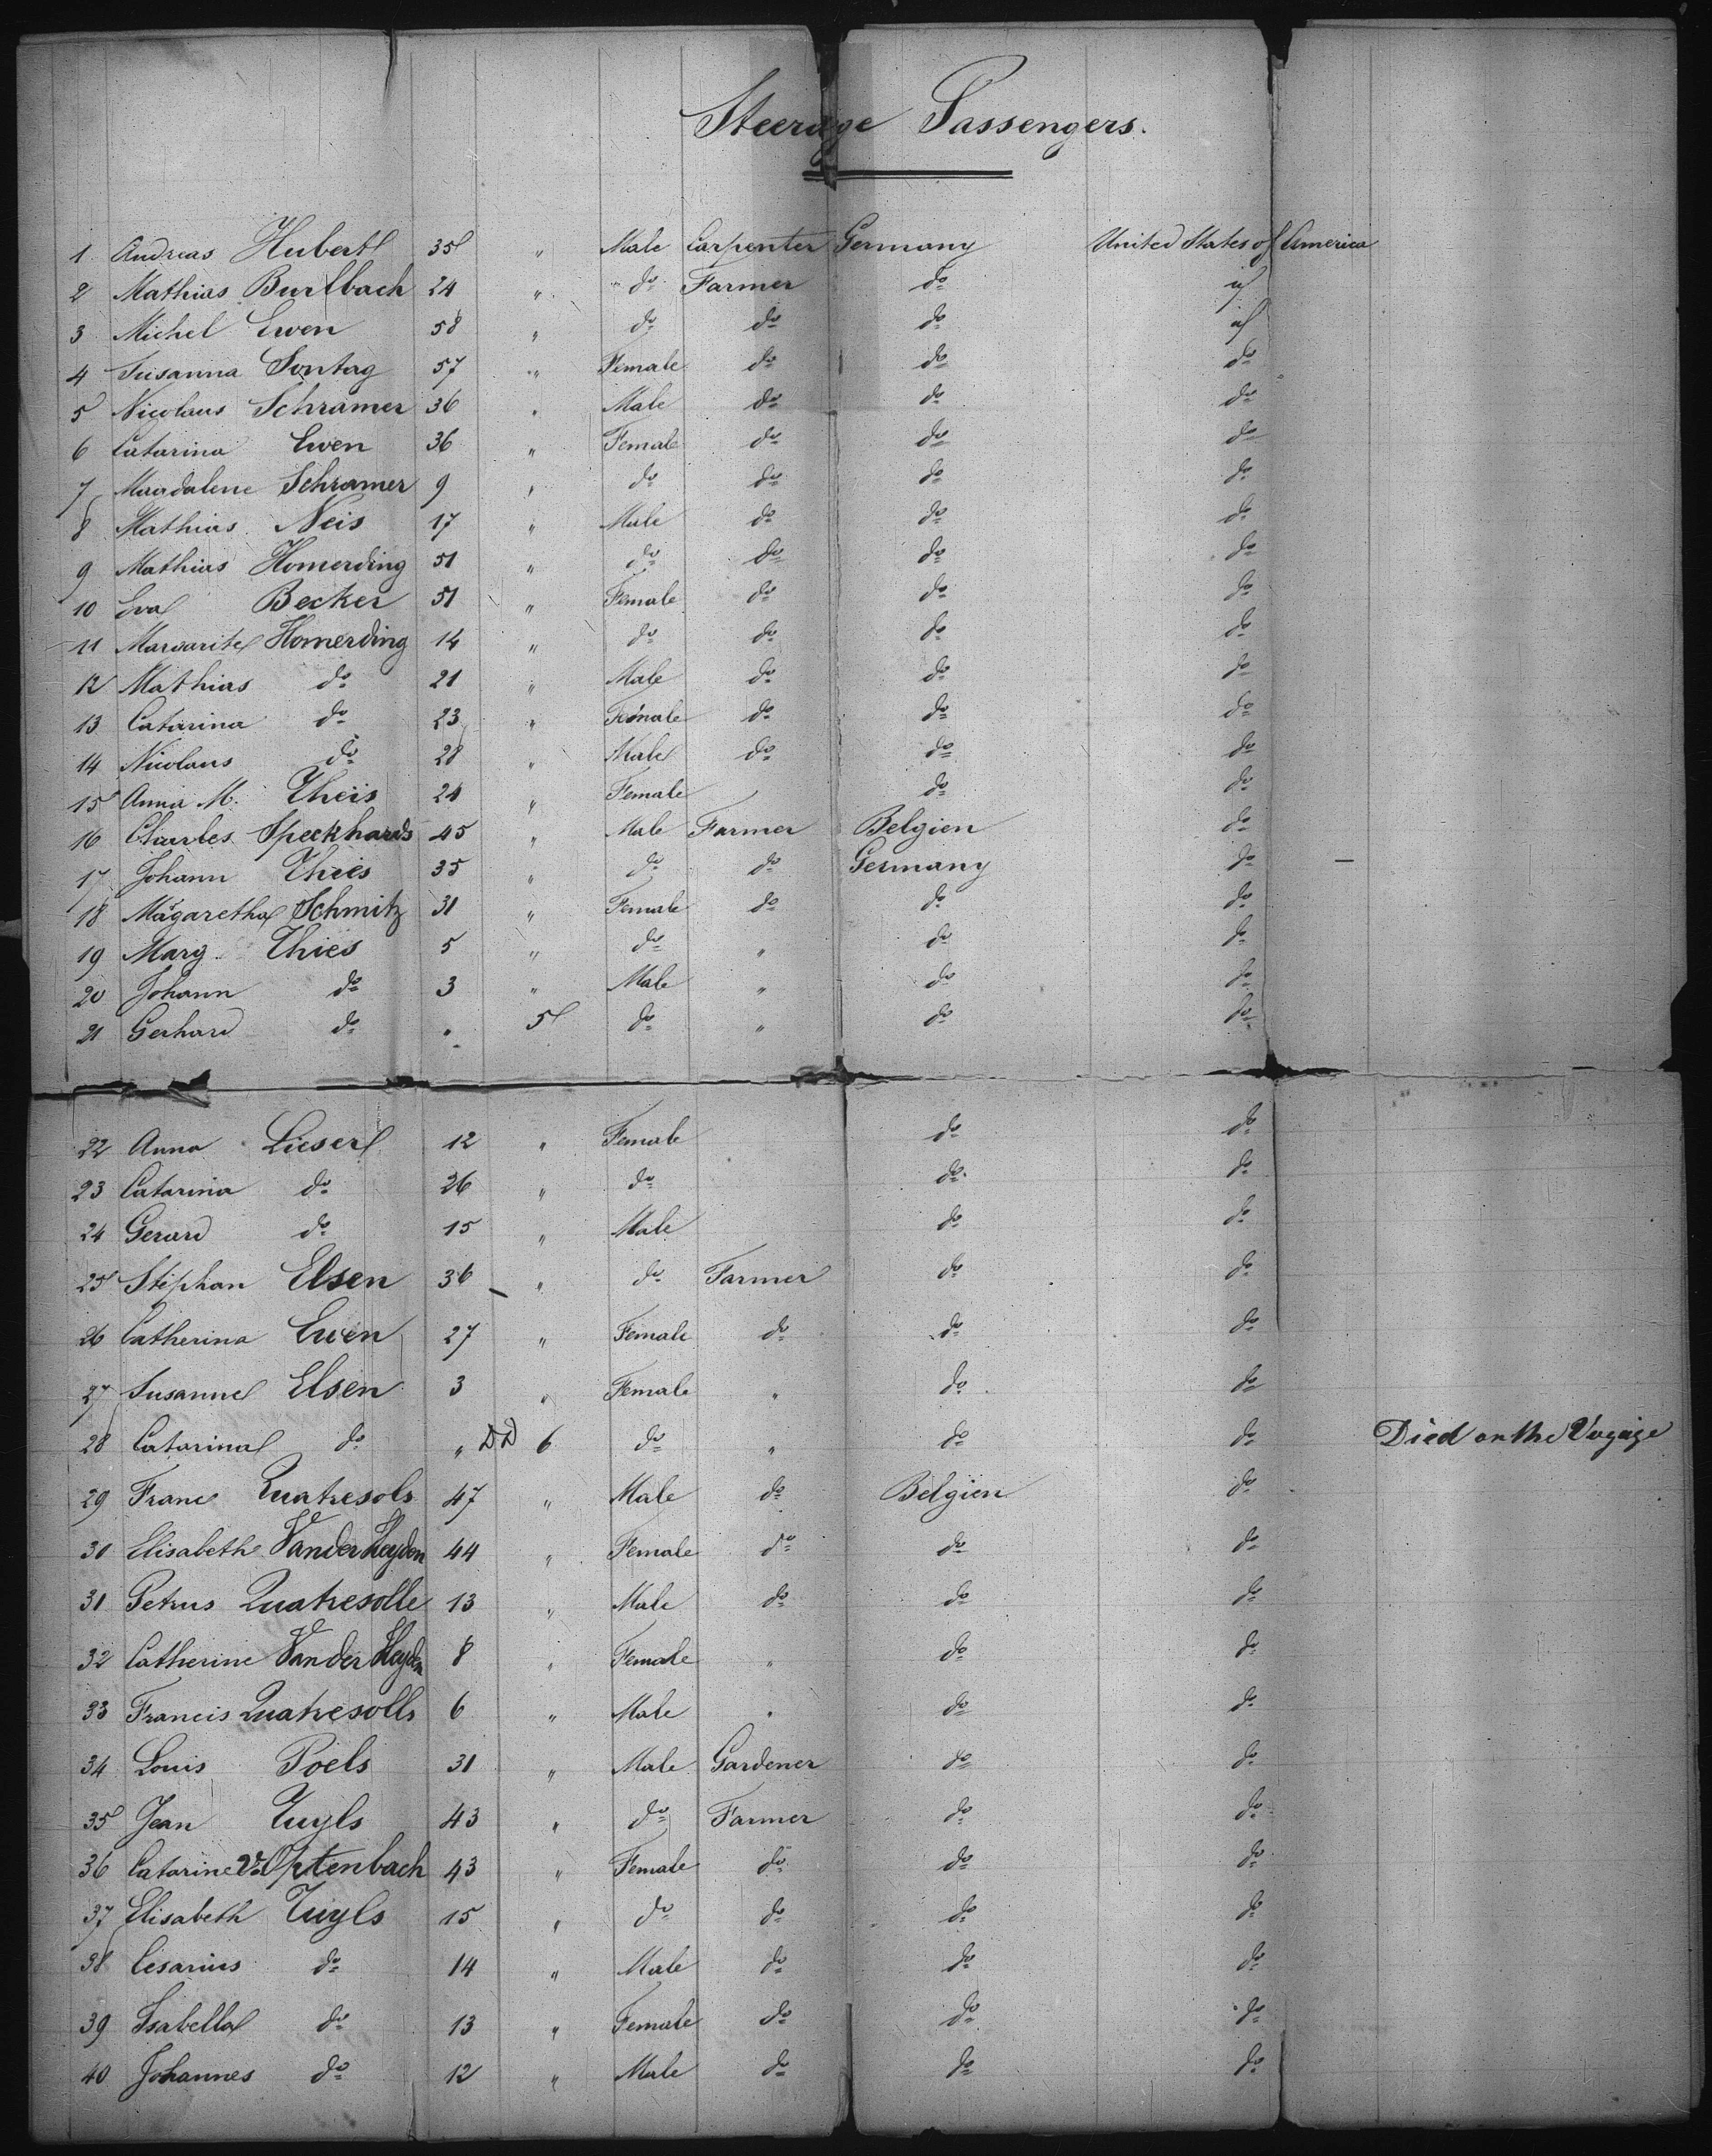 Steerage Passengers.
1 Andreas Hubert 35 " Male Carpenter Germany United States of America
2 Mathias Burlbach 24 " do Farmer do
3 Michel Ewen 58 " do do do
4 Susanna Sontag 57 " Female do do do
5 Nicolaus Schramer 36 " Male do do do
6 Catarina Ewen 36 " Female do do do
7 Magdalene Schramer 9 " do do do do
8 Mathias Neis 17 " Male do do do
9 Mathias Homerding 51 " do do do do
10 Eva Becker 51 " Female do do do
11 Margarite Homerding 14 " do do do do
12 Mathias do 21 " Male do do do
13 Catarina do 23 " Female do do do
14 Nicolaus do 28 " Male do do do
15 Anna M. Theis 24 " Female do do
16 Charles Speckhards 45 " Male Farmer Belgien do
17 Johann Thies 35 " do do Germany do —
18 Magaretha Schmitz 31 " Female do do do
19 Marg. Thies 5 " do " do do
20 Johann do 3 " Male " do do
21 Gerhard do " 5 do " do do
22 Anna Lieser 12 " Female do do
23 Catarina do 26 " do do do
24 Gerard do 15 " Male do do
25 Stephan Elsen 36 " do Farmer do do
26 Catherina Ewen 27 " Female do do do
27 Susanne Elsen 3 " Female " do do
28 Catarina do " DD 6 do " do do Died on the Voyage
29 Franc Quatresols 47 " Male do Belgien do
30 Elisabeth Vander Heyden 44 " Female do do do
31 Petrus Quatresolle 13 " Male do do do
32 Catherine Vander Heyden 8 " Female " do do
33 Francis Quatresolls 6 " Male " do do
34 Louis Poels 31 " Male Gardener do do
35 Jean Tuyls 43 " do Farmer do do
36 Catarine V. Optenbach 43 " Female do do do
37 Elisabeth Tuyls 15 " do do do do
38 Cesarius do 14 " Male do do do
39 Isabella do 13 " Female do do do
40 Johannes do 12 " Male do do do